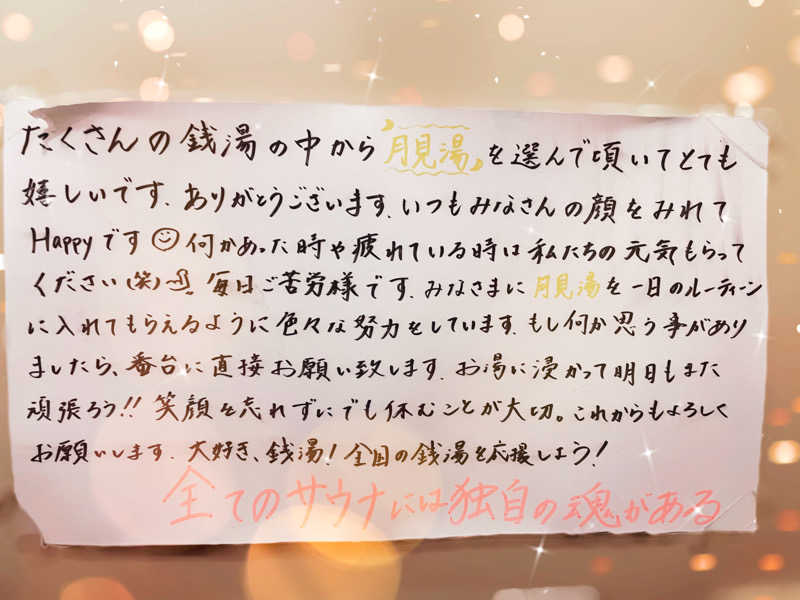 たくさんの銭湯の中から月見湯を選んで頂いてとても
嬉しいです. ありがとうございます. いつもみなさんの顔をみれて
Happyです 何かあった時や疲れている時は私たちの元気もらって
ください(笑) 毎日ご苦労様です. みなさまに月見湯を一日のルーティーン
に入れてもらえるように色々な努力をしています. もし何か思う事があり
ましたら、番台に直接お願い致します. お湯に浸かって明日もまた
頑張ろう!! 笑顔を忘れずにでも休むことが大切。これからもよろしく
お願いします. 大好き、銭湯! 全国の銭湯を応援しよう!
全てのサウナには独自の魂がある